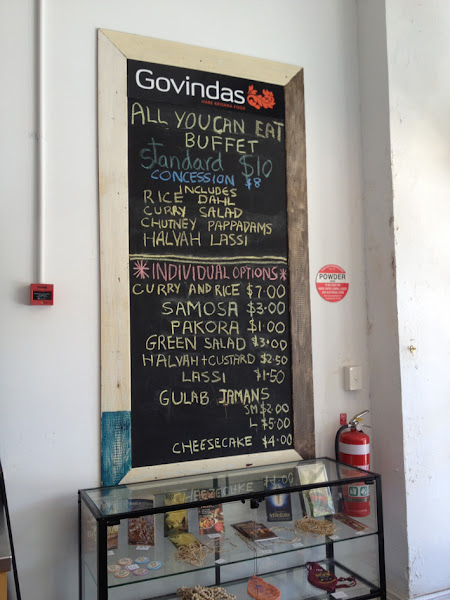 Govindas
HARE KRISHNA FOOD
ALL YOU CAN EAT
BUFFET
standard $10
CONCESSION $8
INCLUDES
RICE DAHL
CURRY SALAD
CHUTNEY PAPPADAMS
HALVAH LASSI
*INDIVIDUAL OPTIONS*
CURRY AND RICE $7.00
SAMOSA $3.00
PAKORA $1.00
GREEN SALAD $3.00
HALVAH + CUSTARD $2.50
LASSI $1.50
GULAB JAMANS
SM $2.00
L $5.00
CHEESECAKE $4.00
POWDER